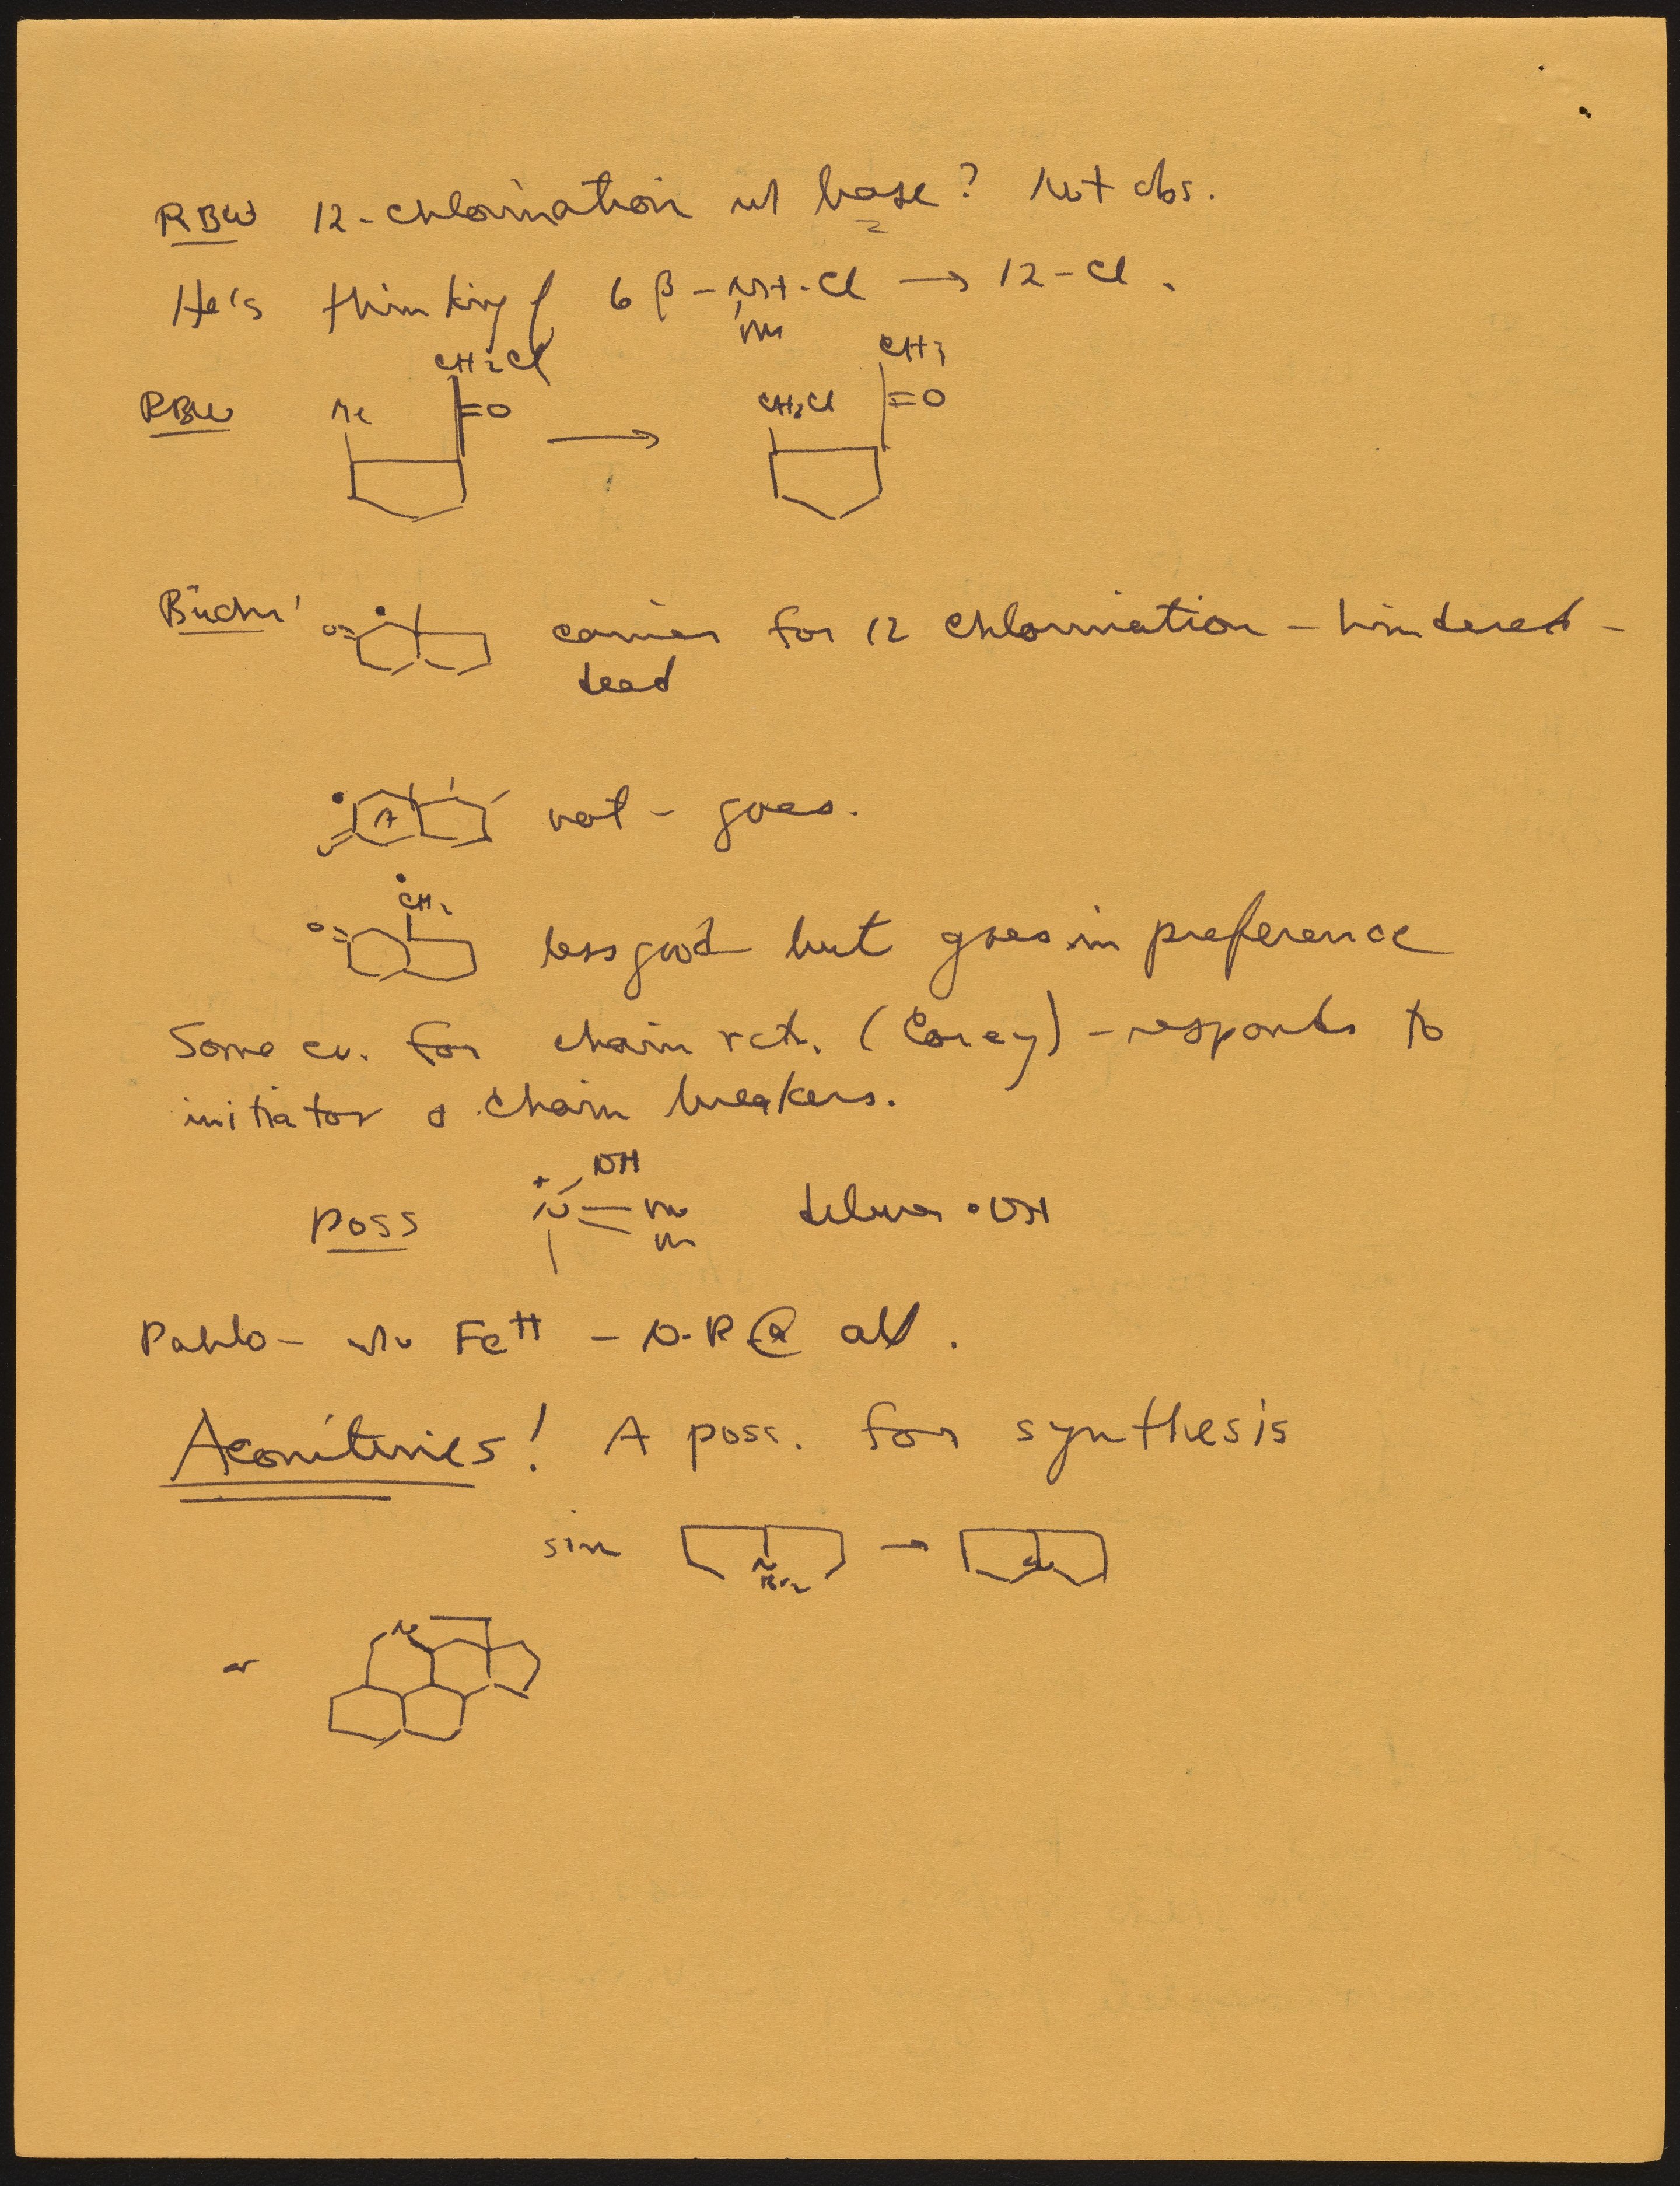 RBW 12-chlorination w/ base? Not obs.
He's thinking of 6β-N+-Cl → 12-Cl.
Me
CH2Cl CH3
RBW Me =O → CH2Cl =O
Büchi O= carrier for 12 chlorination - hindered -
dead
A not - goes.
•CH2
O= less good but goes in preference
Some ev. for chain rctn. (Corey) - responds to
initiator & chain breakers.
+ OH
poss N Me delivers •OH
Me
Pablo - via Fe++ - N-R @ all.
Aconitines! A poss. for synthesis
sim N →
Br2
or N